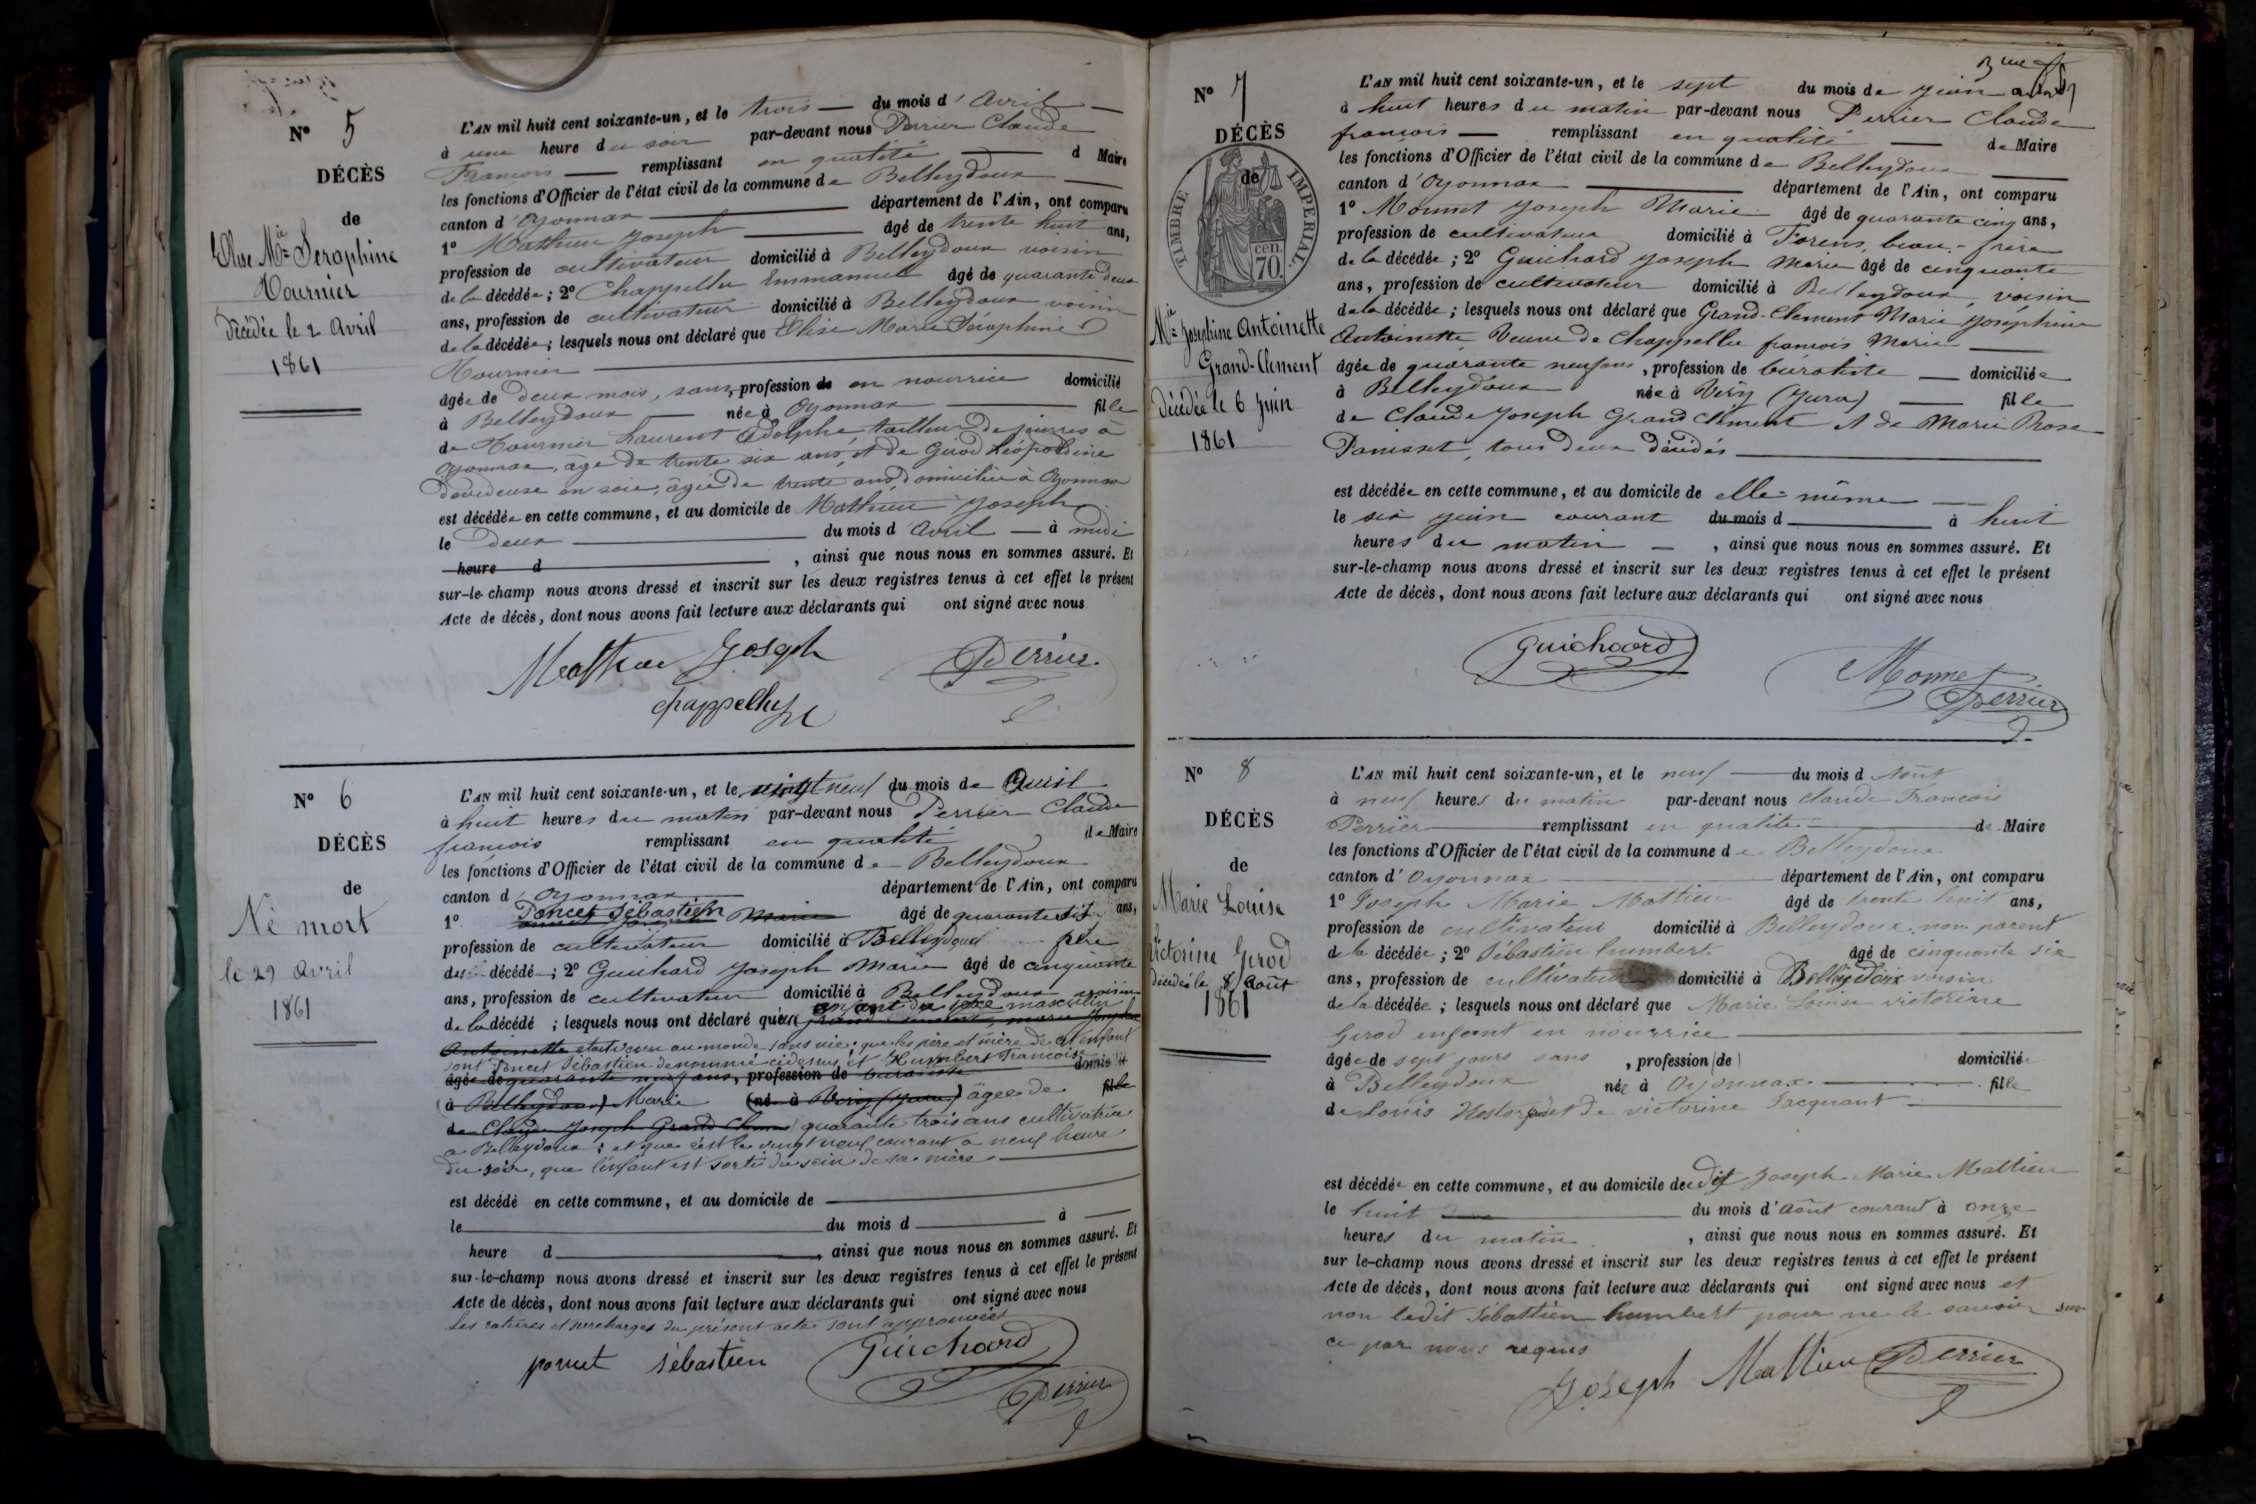 N° 5
DÉCÈS
de
Elise M.ie Seraphine
Tournier
Décédée le 2 Avril
1861
L'AN mil huit cent soixante-un, et le trois du mois d'Avril
à une heure du soir par-devant nous Perrier Claude
François remplissant en qualité d Maire
les fonctions d'Officier de l'état civil de la commune de Belleydoux
canton d'Oyonnax département de l'Ain, ont comparu
1° Mathieu Joseph âgé de trente huit ans,
profession de cultivateur domicilié à Belleydoux voisin
de la décédée; 2° Chappellu Emmanuel âgé de quarante deux
ans, profession de cultivateur domicilié à Belleydoux voisin
de la décédée; lesquels nous ont déclaré que Elise Marie Séraphine
Tournier
âgée de deux mois, sans profession de en nourrice domicilié
à Belleydoux née à Oyonnax fille
de Tournier Laurent Adolphe tailleur de pierres à
Oyonnax, âgé de trente six ans, et de Girod Léopoldine
dévideuse en soie, âgée de trente ans, domiciliée à Oyonnax
est décédée en cette commune, et au domicile de Mathieu Joseph
le Deux du mois d'Avril à midi
heure d , ainsi que nous nous en sommes assuré. Et
sur-le-champ nous avons dressé et inscrit sur les deux registres tenus à cet effet le présent
Acte de décès, dont nous avons fait lecture aux déclarants qui ont signé avec nous
Mathieu Joseph Perrier
chappellu
N° 6
DÉCÈS
de
Né mort
le 29 Avril
1861
L'AN mil huit cent soixante-un, et le vingt neuf du mois de Avril
à huit heures du matin par-devant nous Perrier Claude
françois remplissant en qualité de Maire
les fonctions d'Officier de l'état civil de la commune de Belleydoux
canton d'Oyonnax département de l'Ain, ont comparu
1° Poncet Sébastien Marie âgé de quarante six ans,
profession de cultivateur domicilié à Belleydoux père
du décédé; 2° Guichard Joseph Marie âgé de cinquante
ans, profession de cultivateur domicilié à Belleydoux voisin
de la décédé; lesquels nous ont déclaré qu'un enfant du sexe masculin
Grand Clement, marie Josephine
Antoinette etait venu au monde sans vie; que les père et mère de cet enfant
sont Poncet Sébastien dénommé ci-dessus et Humbert Francoise
âgée de quarante neuf ans, profession de buraliste domicilié
(à Belleydoux) Marie (née à Viry (Jura)) âgée de fille
de Claude Joseph Grand Clement quarante trois ans cultivatrice
a Belleydoux; et que c'est le vingt neuf courant a neuf heure
du soir, que l'enfant est sorti du sein de sa mère
est décédé en cette commune, et au domicile de
le du mois d à
heure d , ainsi que nous nous en sommes assuré. Et
sur-le-champ nous avons dressé et inscrit sur les deux registres tenus à cet effet le présent
Acte de décès, dont nous avons fait lecture aux déclarants qui ont signé avec nous
Les ratures et surcharges du présent acte sont approuvées
ponsет sébastien Guichoard
Perrier
N° 7
DÉCÈS
de
TIMBRE IMPERIAL.
70 cen.
M.ie Josephine Antoinette
Grand-Clement
Décédée le 6 Juin
1861
L'AN mil huit cent soixante-un, et le sept du mois de Juin
à huit heures du matin par-devant nous Perrier Claude
françois remplissant en qualité de Maire
les fonctions d'Officier de l'état civil de la commune de Belleydoux
canton d'Oyonnax département de l'Ain, ont comparu
1° Monnet Joseph Marie âgé de quarante cinq ans,
profession de cultivateur domicilié à Forens, beau-frère
de la décédée; 2° Guichard Joseph Marie âgé de cinquante
ans, profession de cultivateur domicilié à Belleydoux, voisin
de la décédée; lesquels nous ont déclaré que Grand-Clement Marie Joséphine
Antoinette Veuve de Chappellu françois Marie
âgée de quarante neuf ans, profession de buraliste domiciliée
à Belleydoux née à Viry (Jura) fille
de Claude Joseph Grand Clément et de Marie Rose
Panisset, tous deux décédés
est décédée en cette commune, et au domicile de elle-même
le six juin courant du mois d à huit
heures du matin , ainsi que nous nous en sommes assuré. Et
sur-le-champ nous avons dressé et inscrit sur les deux registres tenus à cet effet le présent
Acte de décès, dont nous avons fait lecture aux déclarants qui ont signé avec nous
Guichoard
Monnet
Perrier
N° 8
DÉCÈS
de
Marie Louise
Victorine Girod
décédée le 8 Août
1861
L'AN mil huit cent soixante-un, et le neuf du mois d Août
à neuf heures du matin par-devant nous Claude François
Perrier remplissant en qualité de Maire
les fonctions d'Officier de l'état civil de la commune de Belleydoux
canton d'Oyonnax département de l'Ain, ont comparu
1° Joseph Marie Mattieu âgé de trente huit ans,
profession de cultivateur domicilié à Belleydoux non parent
de la décédée; 2° Sébastien humbert âgé de cinquante six
ans, profession de cultivateur domicilié à Belleydoux voisin
de la décédée; lesquels nous ont déclaré que Marie Louise victorine
Girod enfant en nourrice
âgée de sept jours sans , profession (de) domicilié
à Belleydoux née à Oyonnax fille
de Louis Nestor et de victorine Jacquant
est décédée en cette commune, et au domicile de dit Joseph Marie Mattieu
le huit du mois d'août courant à onze
heures du matin , ainsi que nous nous en sommes assuré. Et
sur le-champ nous avons dressé et inscrit sur les deux registres tenus à cet effet le présent
Acte de décès, dont nous avons fait lecture aux déclarants qui ont signé avec nous et
non ledit Sébastien humbert pour ne le savoir sur
ce par nous requis
Joseph Mattieu Perrier